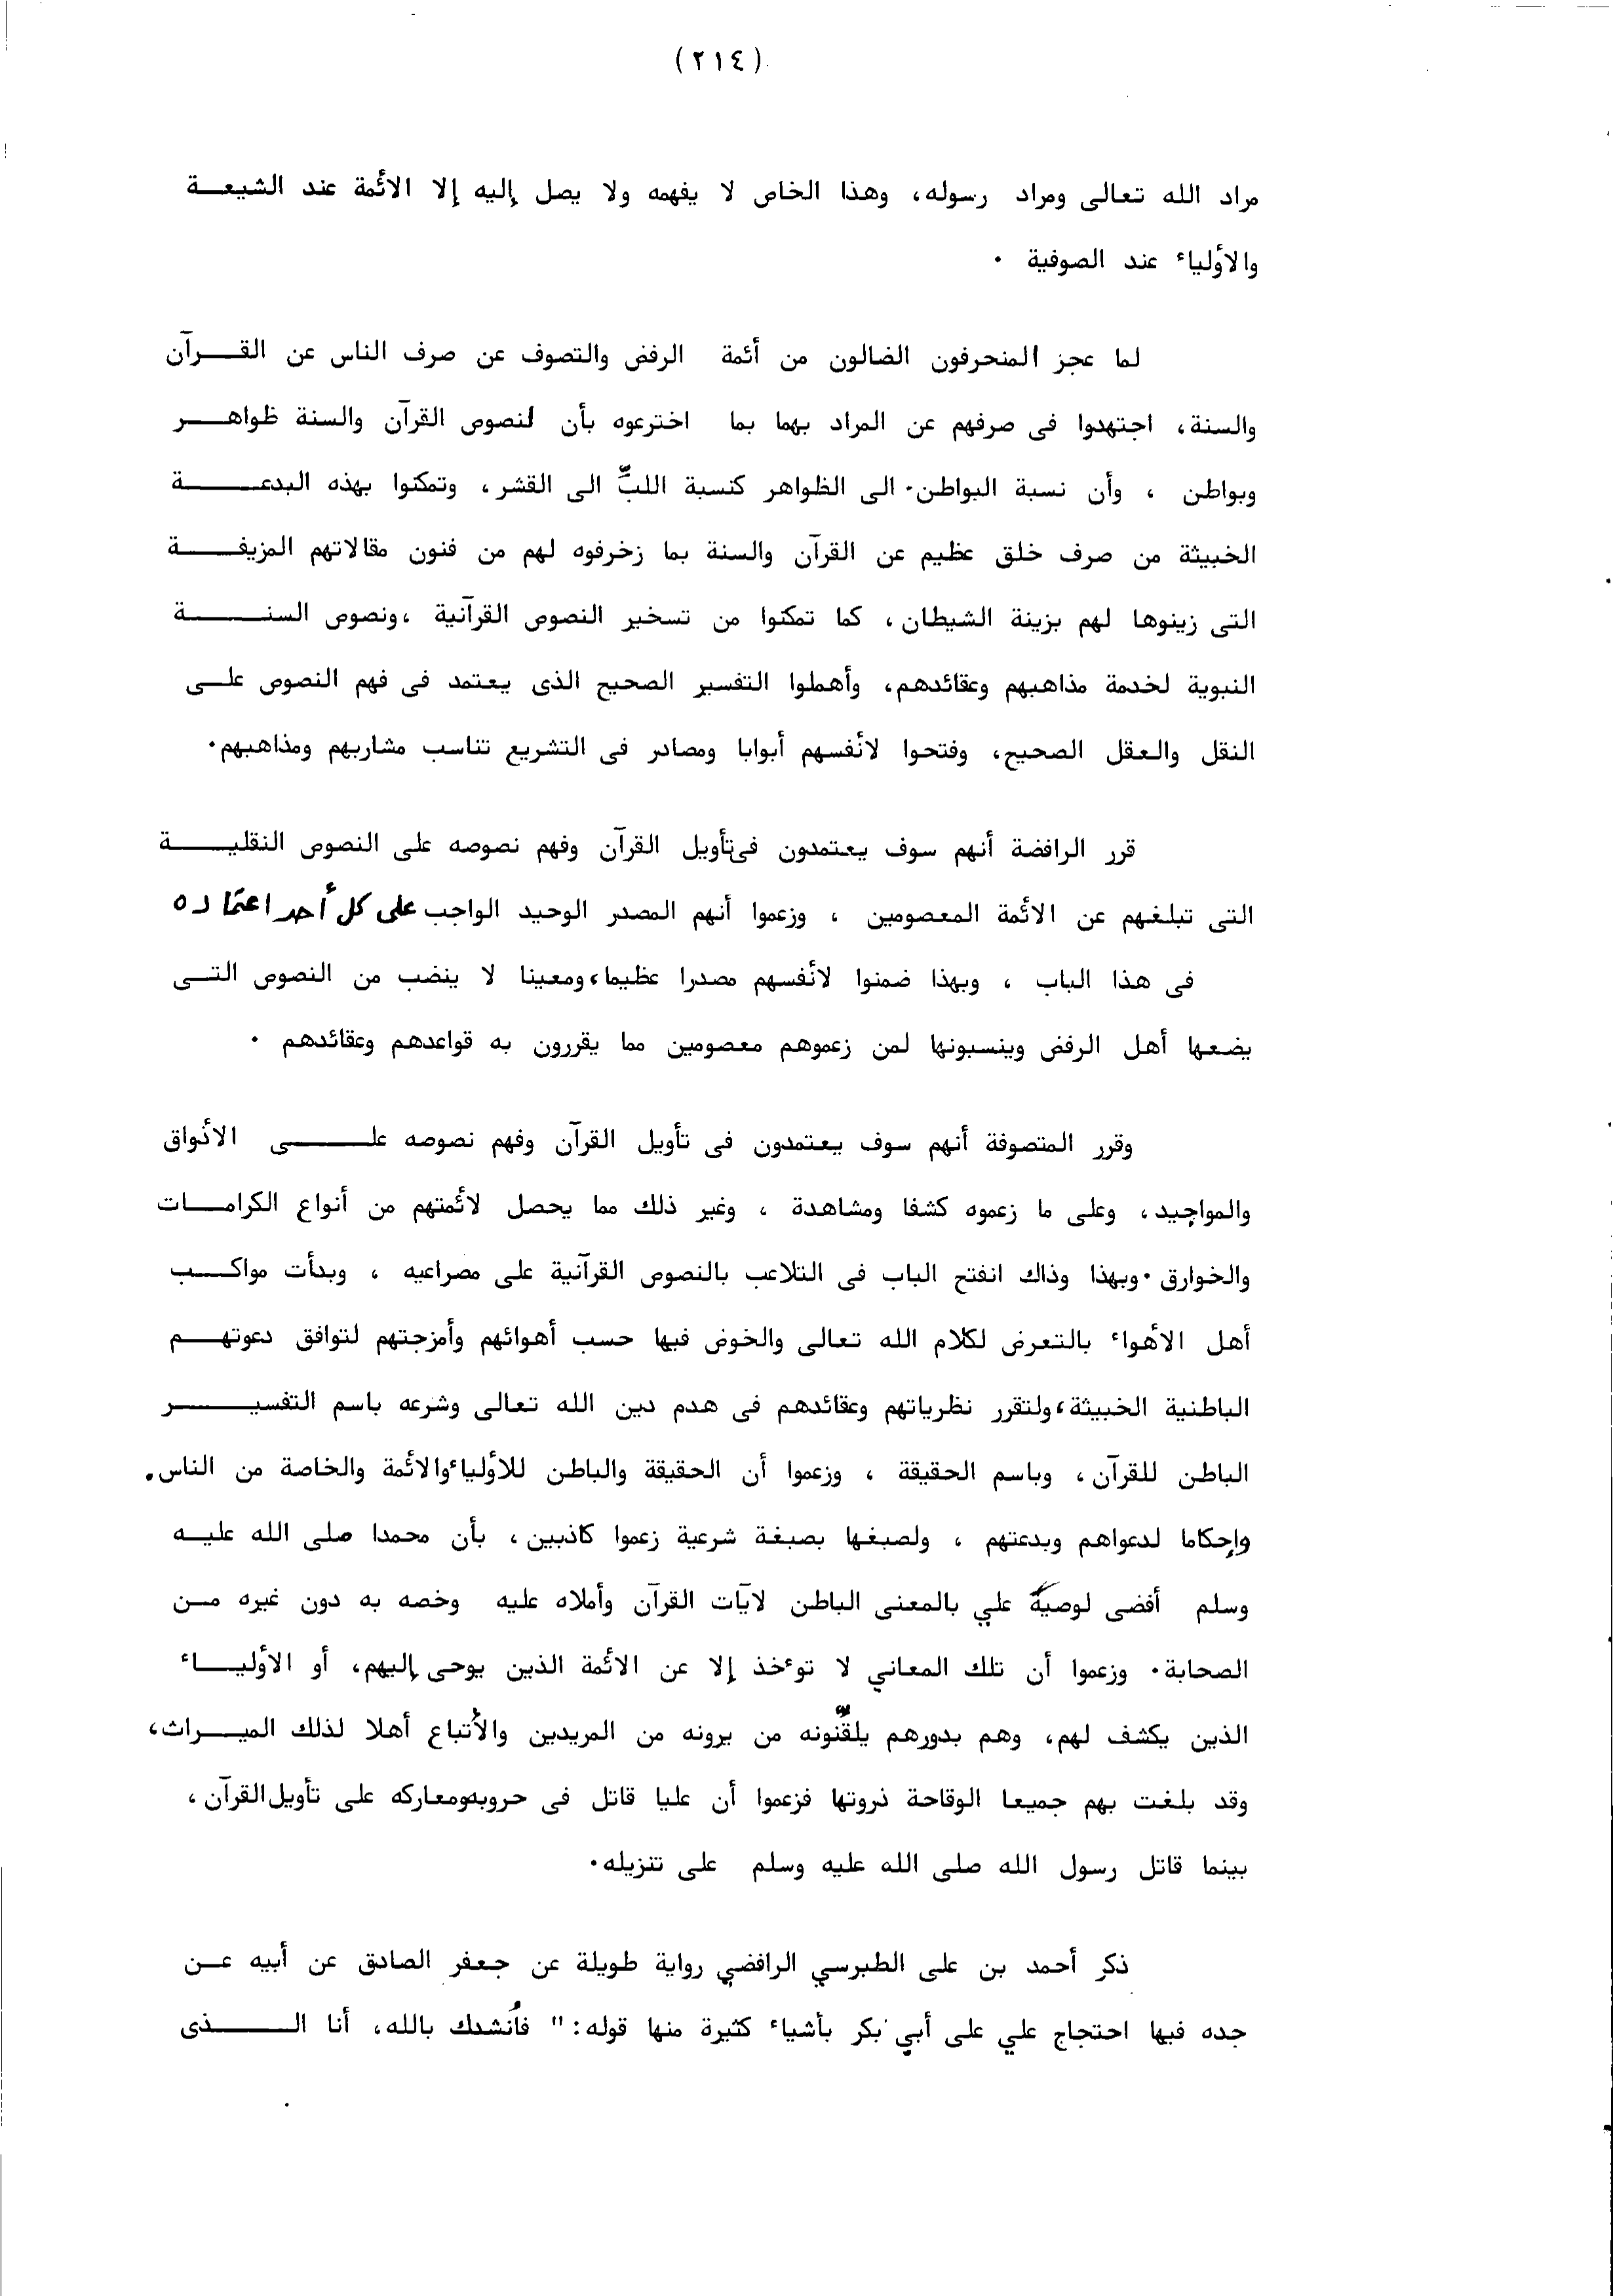 (٢١٤)
مراد الله تعالى ومراد رسوله، وهذا الخاص لا يفهمه ولا يصل إليه إلا الأئمة عند الشيعة
والأولياء عند الصوفية ٠
لما عجز المنحرفون الضالون من أئمة الرفض والتصوف عن صرف الناس عن القرآن
والسنة، اجتهدوا فى صرفهم عن المراد بهما بما اخترعوه بأن لنصوص القرآن والسنة ظواهر
وبواطن ، وأن نسبة البواطن الى الظواهر كنسبة اللبّ الى القشر، وتمكنوا بهذه البدعة
الخبيثة من صرف خلق عظيم عن القرآن والسنة بما زخرفوه لهم من فنون مقالاتهم المزيفة
التى زينوها لهم بزينة الشيطان، كما تمكنوا من تسخير النصوص القرآنية ،ونصوص السنة
النبوية لخدمة مذاهبهم وعقائدهم، وأهملوا التفسير الصحيح الذى يعتمد فى فهم النصوص على
النقل والعقل الصحيح، وفتحوا لأنفسهم أبوابا ومصادر فى التشريع تناسب مشاربهم ومذاهبهم٠
قرر الرافضة أنهم سوف يعتمدون فى تأويل القرآن وفهم نصوصه على النصوص النقلية
التى تبلغهم عن الأئمة المعصومين ، وزعموا أنهم المصدر الوحيد الواجب على كل أحد اعتماده
فى هذا الباب ، وبهذا ضمنوا لأنفسهم مصدرا عظيما،ومعينا لا ينضب من النصوص التى
يضعها أهل الرفض وينسبونها لمن زعموهم معصومين مما يقررون به قواعدهم وعقائدهم ٠
وقرر المتصوفة أنهم سوف يعتمدون فى تأويل القرآن وفهم نصوصه على الأذواق
والمواجيد، وعلى ما زعموه كشفا ومشاهدة ، وغير ذلك مما يحصل لأئمتهم من أنواع الكرامات
والخوارق ٠وبهذا وذاك انفتح الباب فى التلاعب بالنصوص القرآنية على مصراعيه ، وبدأت مواكب
أهل الأهواء بالتعرض لكلام الله تعالى والخوض فيها حسب أهوائهم وأمزجتهم لتوافق دعوتهم
الباطنية الخبيثة،ولتقرر نظرياتهم وعقائدهم فى هدم دين الله تعالى وشرعه باسم التفسير
الباطن للقرآن، وباسم الحقيقة ، وزعموا أن الحقيقة والباطن للأولياء والأئمة والخاصة من الناس.
وإحكاما لدعواهم وبدعتهم ، ولصبغها بصبغة شرعية زعموا كاذبين، بأن محمدا صلى الله عليه
وسلم أفضى لوصيه علي بالمعنى الباطن لآيات القرآن وأملاه عليه وخصه به دون غيره من
الصحابة٠ وزعموا أن تلك المعاني لا تؤخذ إلا عن الأئمة الذين يوحى إليهم، أو الأولياء
الذين يكشف لهم، وهم بدورهم يلقّنونه من يرونه من المريدين والأتباع أهلا لذلك الميراث،
وقد بلغت بهم جميعا الوقاحة ذروتها فزعموا أن عليا قاتل فى حروبه ومعاركه على تأويل القرآن،
بينما قاتل رسول الله صلى الله عليه وسلم على تنزيله٠
ذكر أحمد بن على الطبرسي الرافضي رواية طويلة عن جعفر الصادق عن أبيه عن
جده فيها احتجاج علي على أبي بكر بأشياء كثيرة منها قوله: " فأنشدك بالله، أنا الذى